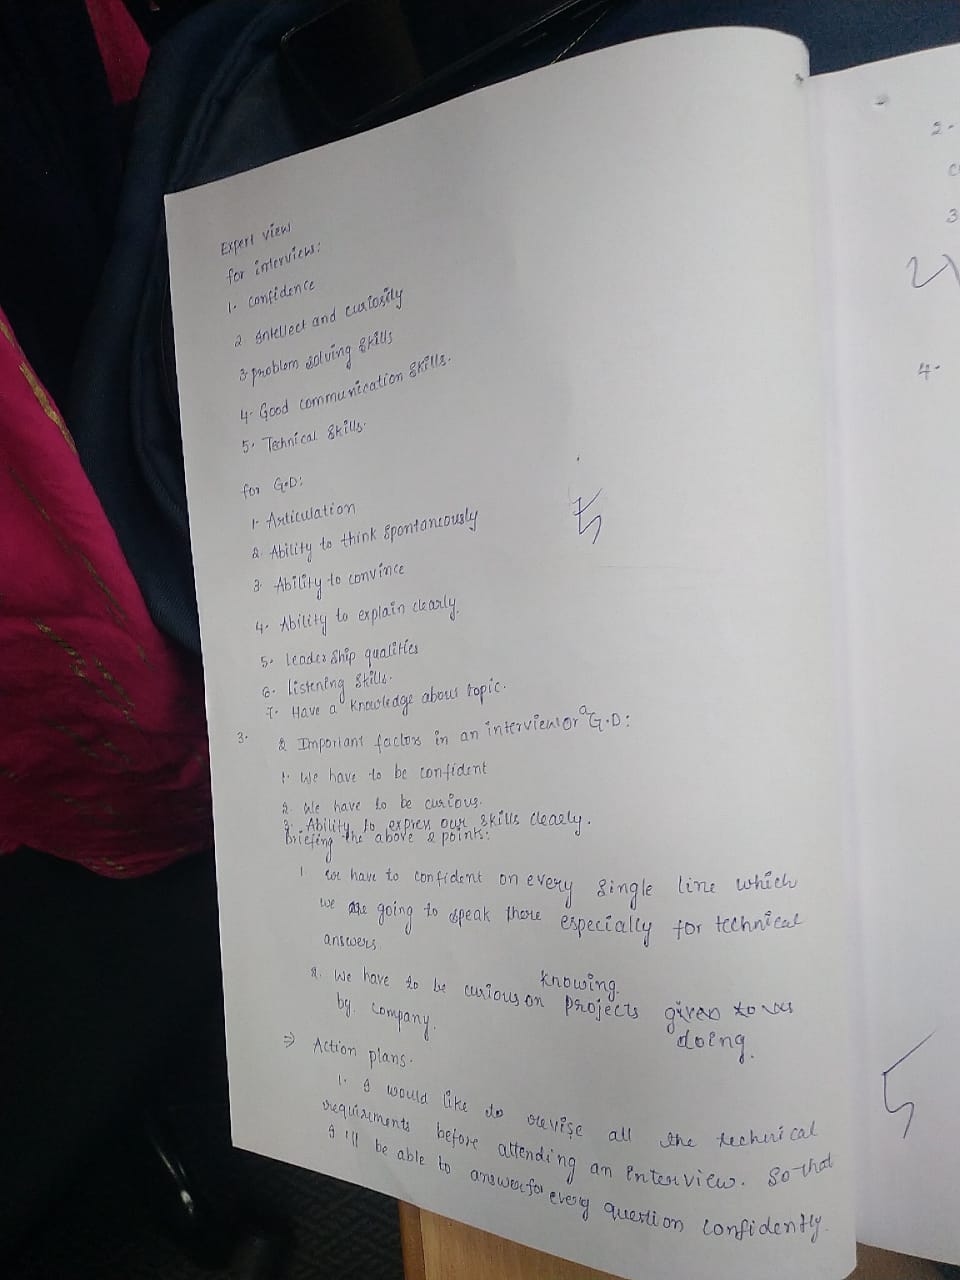 Expert view
for interview:
1. Confidence
2 Intellect and curiosity
3 problem solving skills
4. Good communication skills.
5. Technical skills.
for G.D:
1. Articulation
2. Ability to think spontaneously
3. Ability to convince
4. Ability to explain clearly.
5. leader ship qualities
6. Listening skills.
7. Have a knowledge about topic.
3.
2 Important factors in an interview or a G.D:
1. We have to be confident
2. We have to be curious.
3. Ability to express our skills clearly.
Briefing the above 2 points:
1 We have to confident on every single line which
we are going to speak there especially for technical
answers.
2. We have to be curious on knowing projects given to us
by company. doing.
⇒ Action plans.
1. I would like to revise all the technical
requirements before attending an interview. So that
I'll be able to answer for every question confidently.
2.
3
4.